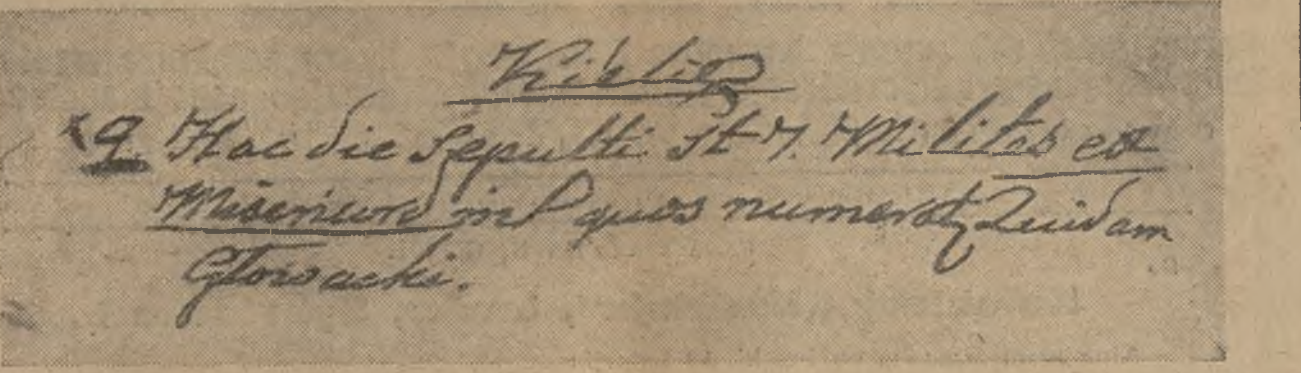 Kielce
9 Hac die Sepulti st 7. Milites ex
Misericord int quos numerat Quidam
Głowacki.